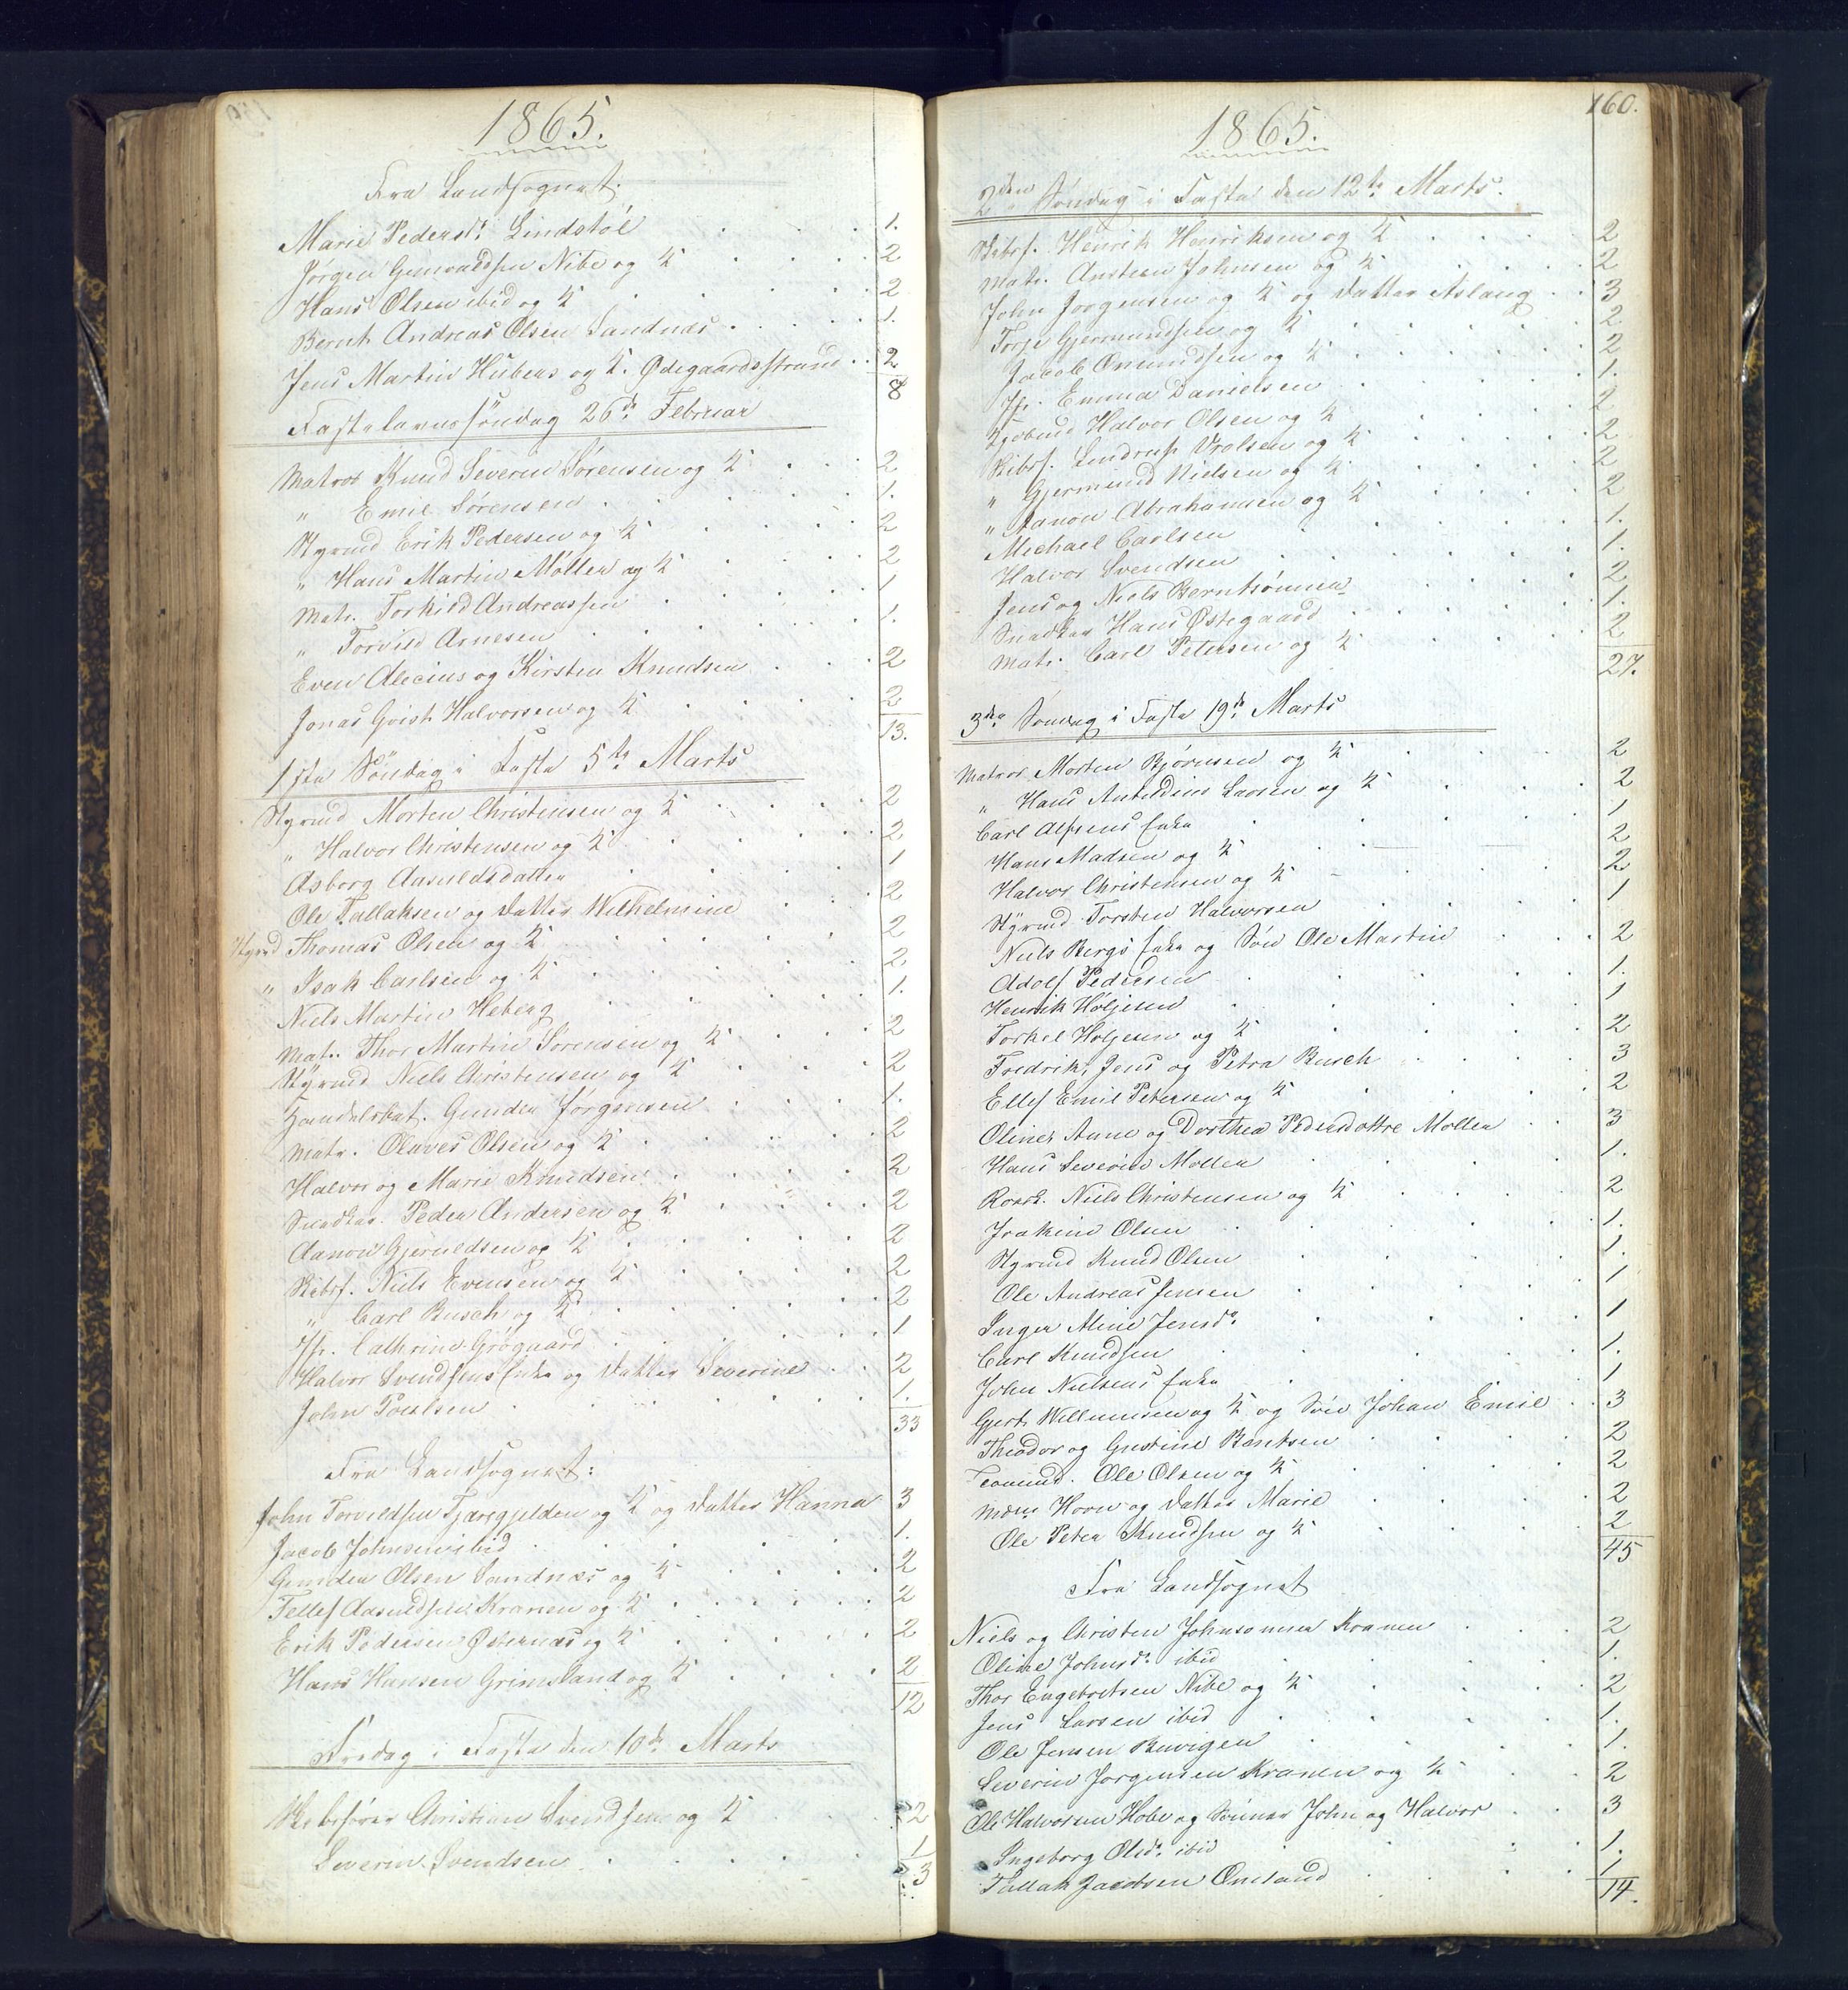 1865.
Fra Landsognet.
Marie Pedersdr. Lindstøl . . . 1.
Jørgen Gunvaldsen Nibe og K . . . 2
Hans Olsen ibid og K . . . 2
Bernt Andreas Olsen Sandnæs . . . 1.
Jens Martin Hubers og K. Ødegaardsstrand . . 2
8
Fastelavnssøndag 26de Februar
Matros Knud Severin Sørensen og K . . . 2
" Emil Sørensen . . . 1.
Styrmd Erik Pedersen og K . . . 2
" Hans Martin Møller og K . . . 2
Matr. Torkild Andreassen . . . 1
" Torvild Arnesen . . . 1.
Even Alecius og Kirsten Knudsen . . . 2
Jonas Gvist Halvorsen og K . . . 2
13.
1ste Søndag i Faste 5te Marts
Styrmd Morten Christensen og K . . . 2
" Halvor Christensen og K . . . 2
Asborg Aasuldsdatter . . . 1
Ole Tallaksen og Datter Wilhelmine . . . 2
Styrmd Thomas Olsen og K . . . 2
" Isak Carlsen og K . . . 2
Niels Martin Heberg . . . 1.
Mat. Thor Martin Sørensen og K . . . 2
Styrmd Niels Christensen og K . . . 2
Handelsbet. Gunder Jørgensen . . . 1.
Matr. Olaves Olsen og K . . . 2
Halvor og Marie Knudsen . . . 2
Snedker Peder Andersen og K . . . 2
Aanon Gjeruldsen og K . . . 2
Skibsf. Niels Evensen og K . . . 2
" Carl Busch og K . . . 2
Jfr. Cathrine Grøgaard . . . 1
Halvor Svendsens Enke og Datter Severine . . 2
John Poulsen . . . 1.
33
Fra Landsognet:
John Torvildsen Tjæregjelden og K og Datter Hanna 3
Jacob Johnsen ibid . . . 1.
Gunder Olsen Sandnæs og K . . . 2
Tellef Aasuldsen Kranen og K . . . 2
Erik Pedersen Østernæs og K . . . 2
Hans Hansen Grimsland og K . . . 2
12
Fredag i Faste den 10de Marts
Skibsfører Christian Svendsen og K . . . 2
Severin Svendsen . . . 1
3
160.
1865.
2den Søndag i Faste den 12te Marts.
Skibsf. Henrik Henriksen og K . . . 2
Matr. Anstein Johnsen og K . . . 2
John Jørgensen og K og Datter Aslaug . . 3
Torje Gjermundsen og K . . . 2
Jacob Omundsen og K . . . 2
Jfr. Emma Danielsen . . . 1.
Halvor Olsen og K . . . 2
Skibsf. Lindrup Vrolsen og K . . . 2
" Gjermund Nielsen og K . . . 2
" Aanon Abrahamsen og K . . . 2
Michael Carlsen . . . 1.
Halvor Svendsen . . . 1.
Jens og Niels Berntsønner . . . 2
Snedker Hans Østegaard . . . 1.
Matr. Carl Petersen og K . . . 2
27.
3die Søndag i Faste 19de Marts
Matros Morten Bjørnsen og K . . . 2
" Hans Larsen og K . . . 2
Carl Alfsens Enke . . . 1
Hans Madsen og K . . . 2
Halvor Christensen og K . . . 2
Styrmd Torsten Halvorsen . . . 1
Niels Bergs Enke og Søn Ole Martin . . . 2
Adolf Pedersen . . . 1.
Henrik Holjesen . . . 1
Torkel Holjesen og K . . . 2
Fredrik, Jens og Petra Busch . . . 3
Ellef Emil Petersen og K . . . 2
Oline, Anne og Dorthea Pedersdøttre Møller . . 3
Hans Severin Møller . . . 1.
Niels Christensen og K . . . 2
Joakim Olsen . . . 1.
Styrmd Knud Olsen . . . 1.
Ole Andreas Jensen . . . 1
Inger Aline Jensdr . . . 1
Carl Knudsen . . . 1.
John Nielsens Enke . . . 1
Gjert Willumsen og K og Søn Johan Emil . . 3
Theodor og Gustine Bentsen . . . 2
Tømmd. Ole Olsen og K . . . 2
Horn og Datter Marie . . . 2
Ole Peter Knudsen og K . . . 2
45
Fra Landsognet
Niels og Christen Johnsønner Kranen . . . 2
Oline Johnsdr ibid . . . 1.
Thor Engebretsen Nibe og K . . . 2
Jens Larsen ibid . . . 1.
Ole Jensen Buvigen . . . 1.
Severin Jørgensen Kranen og K . . . 2
Ole Halvorsen Hobe og Sønner John og Halvor . . 3
Ingeborg Olsdr ibid . . . 1.
Tallak Jacobsen Omland . . . 1
14.